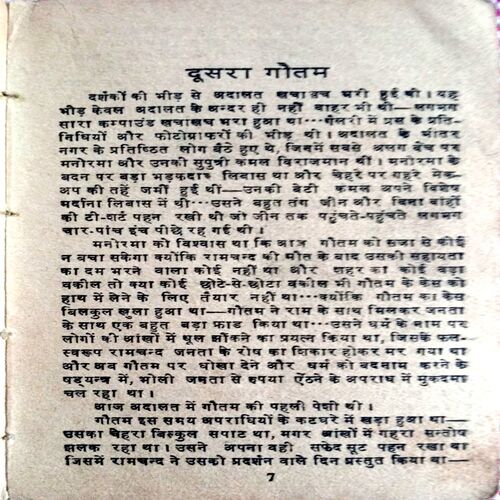 दूसरा गौतम
दर्शकों की भीड़ से अदालत खचाखच भरी हुई थी। यह
भीड़ केवल अदालत के अन्दर ही नहीं बाहर भी थी—लगभग
सारा कम्पाउंड खचाखच भरा हुआ था...गैलरी में प्रेस के प्रति-
निधियों और फोटोग्राफरों की भीड़ थी। अदालत के भीतर
नगर के प्रतिष्ठित लोग बैठे हुए थे, जिनमें सबसे अलग बेंच पर
मनोरमा और उनकी सुपुत्री कमल विराजमान थीं। मनोरमा के
बदन पर बड़ा भड़कदार लिबास था और चेहरे पर गहरे मेक-
अप की तहें जमीं हुई थीं—उनकी बेटी कमल अपने विशेष
मर्दाना लिबास में थी...उसने बहुत तंग जीन और बिना बांहों
की टी-शर्ट पहन रखी थी जो जीन तक पहुंचते-पहुंचते लगभग
चार-पांच इंच पीछे रह गई थी।
मनोरमा को विश्वास था कि आज गौतम को सजा से कोई
न बचा सकेगा क्योंकि रामचन्द की मौत के बाद उसकी सहायता
का दम भरने वाला कोई नहीं था और शहर का कोई बड़ा
वकील तो क्या कोई छोटे-से-छोटा वकील भी गौतम के केस को
हाथ में लेने के लिए तैयार नहीं था...क्योंकि गौतम का केस
बिलकुल खुला हुआ था—गौतम ने राम के साथ मिलकर जनता
के साथ एक बहुत बड़ा फ्राड किया था...उसने धर्म के नाम पर
लोगों की आंखों में धूल झोंकने का प्रयत्न किया था, जिसके फल-
स्वरूप रामचन्द जनता के रोष का शिकार होकर मर गया था
और अब गौतम पर धोखा देने और धर्म को बदनाम करने के
षड्यन्त्र में, भोली जनता से रुपया ऐंठने के अपराध में मुकदमा
चल रहा था।
आज अदालत में गौतम की पहली पेशी थी।
गौतम इस समय अपराधियों के कटघरे में खड़ा हुआ था—
उसका चेहरा बिल्कुल सपाट था, मगर आंखों में गहरा सन्तोष
झलक रहा था। उसने अपना वही सफेद सूट पहन रखा था
जिसमें रामचन्द ने उसको प्रदर्शन वाले दिन प्रस्तुत किया था—
7